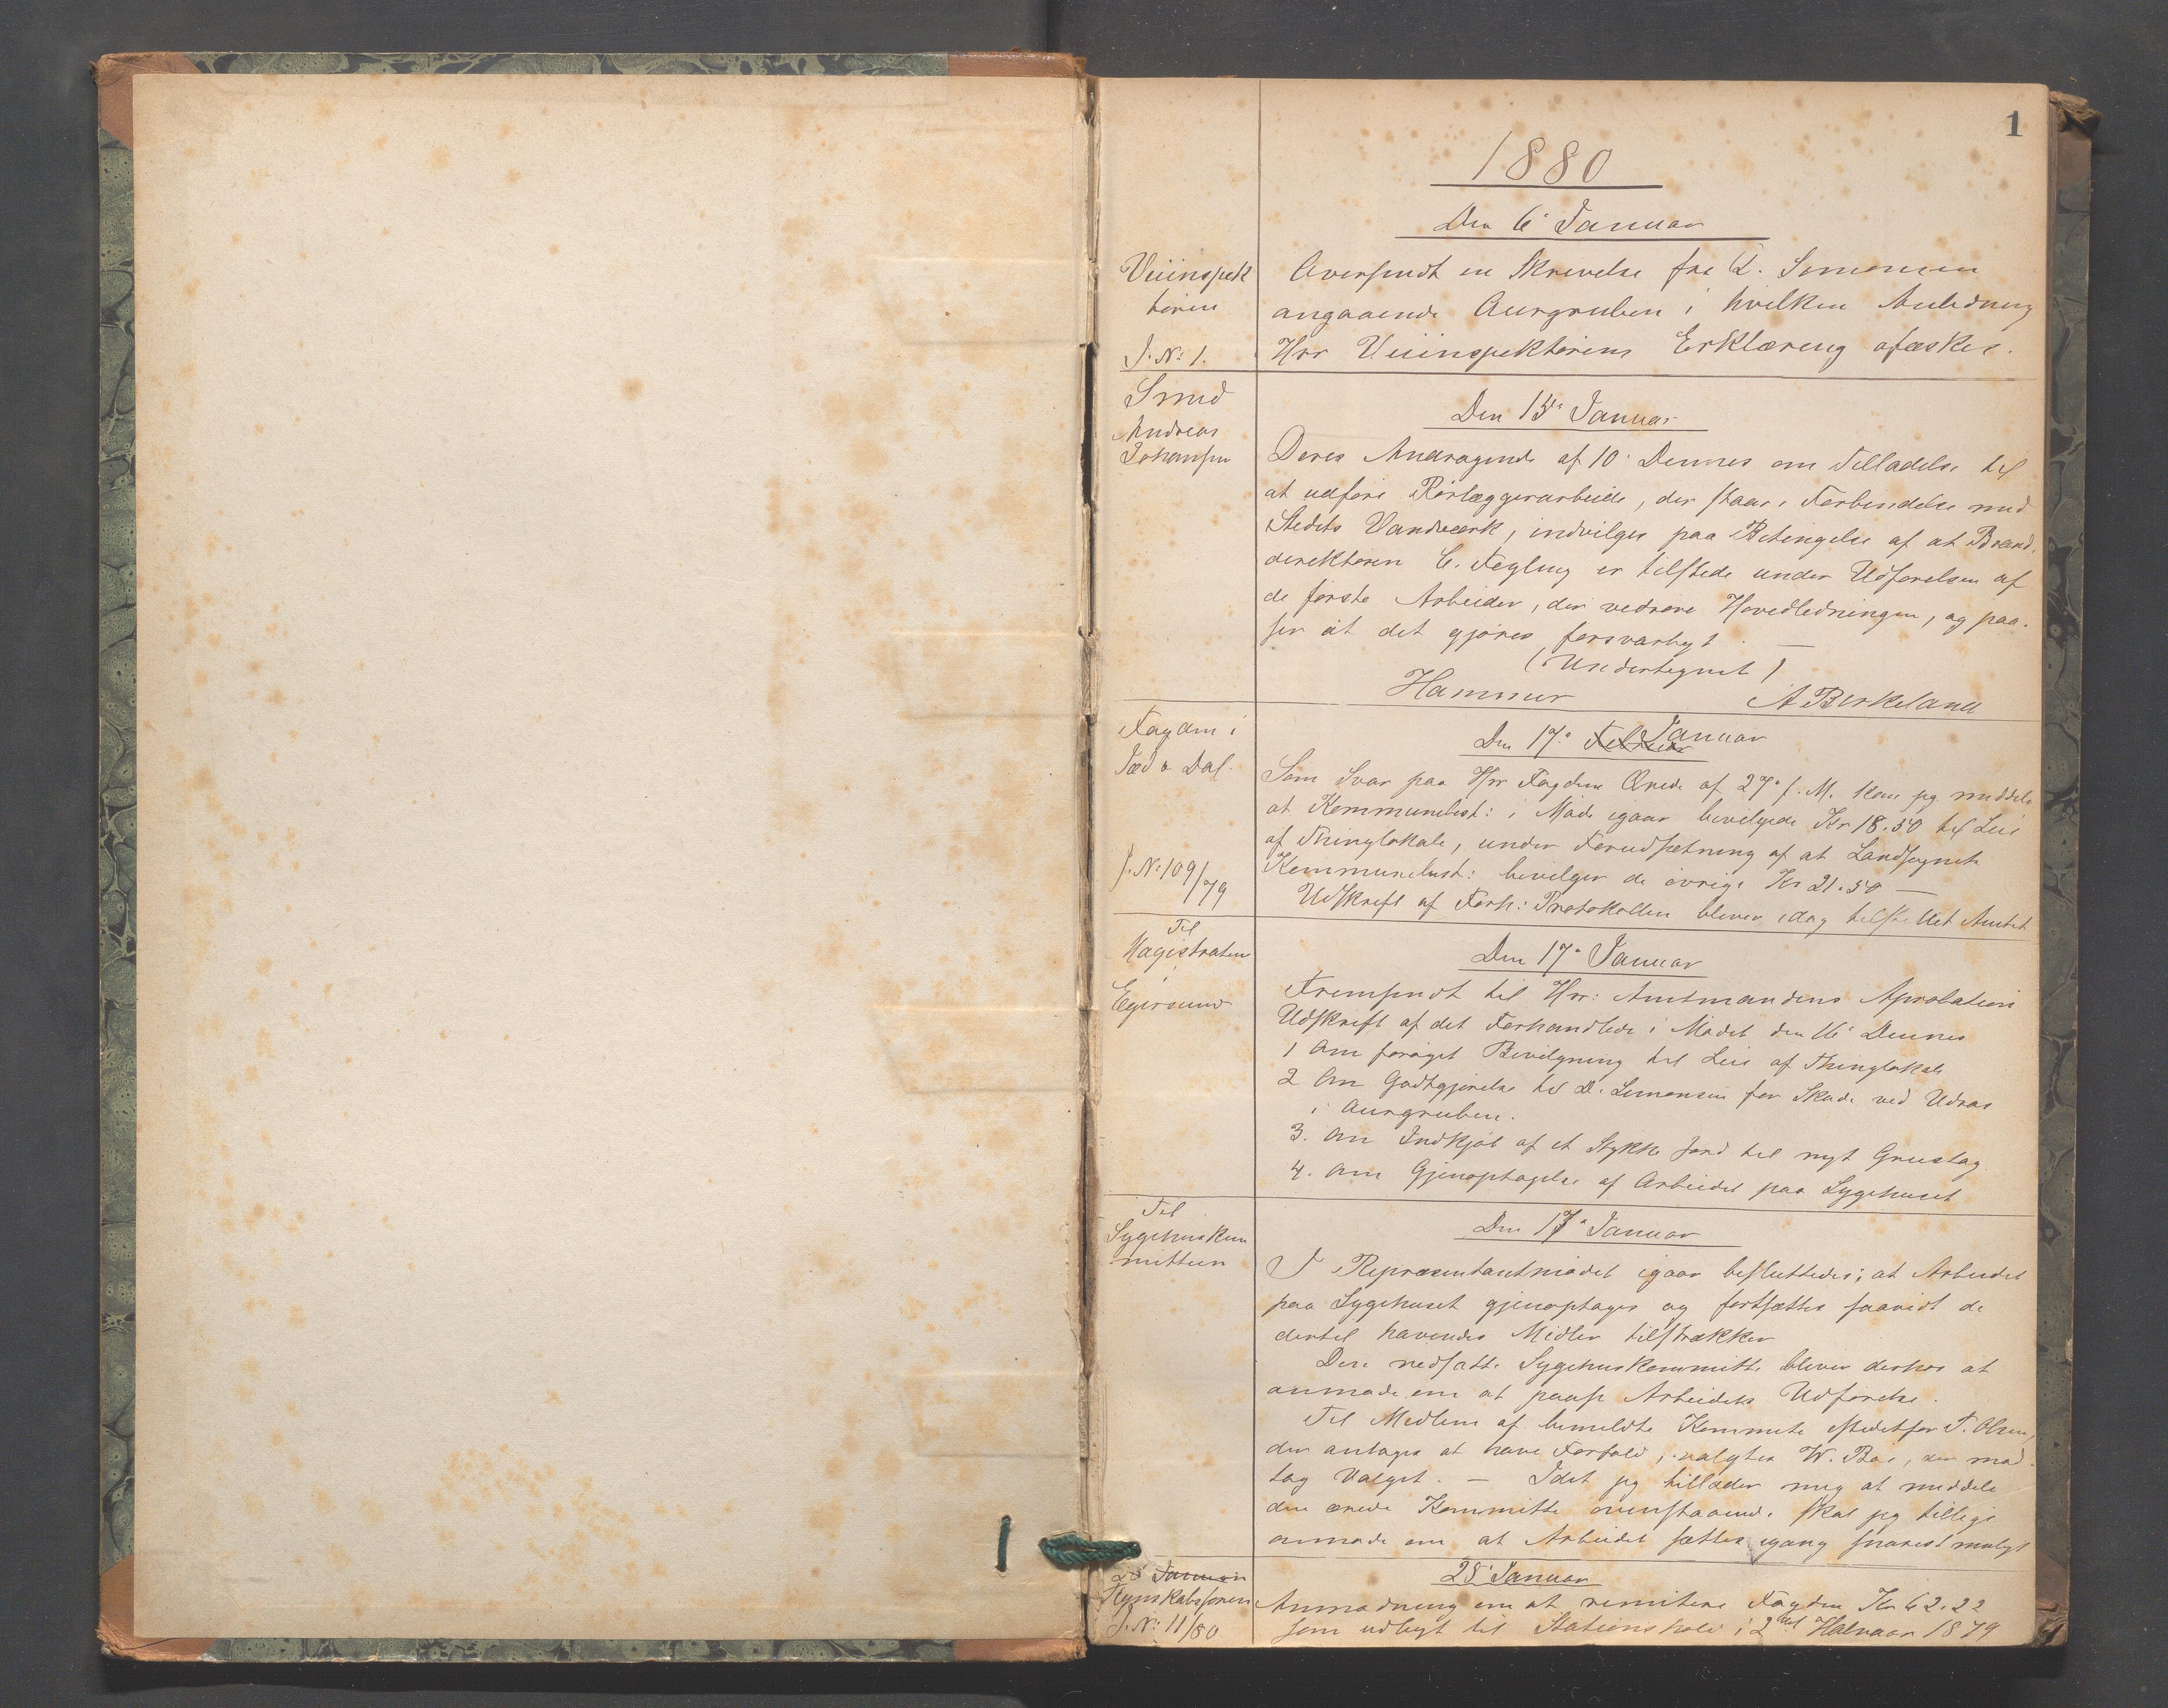 1
1880
Den 6' Januar
Veiinspek
tøren
J. N: 1.
Oversendt en Skrivelse fra D. Simonsen
angaaende Aurgruben i hvilken Anledning
Hrr Veiinspektørens Erklæring afæskes.
Smed
Andreas
Johansen
Den 15de Januar
Deres Andragende af 10' Dennes om Tilladelse til
at udføre Rørlæggerarbeide, der staar i Forbindelse med
Stedets Vandværk, indvilges paa Betingelse af at Brand-
direktøren C. Feyling er tilstede under Udførelsen af
de første Arbeider, der vedrøre Hovedledningen, og paa-
ser at det gjøres forsvarligt. —
(Undertegnet)
Hammer A Birkeland
Fogden i
Jæd. & Dal.
J. N: 109/79
Den 17' Februar Januar
Som Svar paa Hrr Fogdens Ærede af 27' f. M. kan jeg meddele
at Kommunebest: i Møde igaar bevilgede Kr 18.50 til Leie
af Thinglokale, under Forudsætning af at Landsognets
Kommunebest: bevilger de øvrige Kr 21.50 —
Udskrift af Forh: Protokollen bliver idag tilstillet Amtet
Til
Magistraten
i
Egersund
Den 17' Januar
Fremsendt til Hrr: Amtmandens Aprobation
Udskrift af det Forhandlede i Mødet den 16' Dennes
1 Om forøget Bevilgning til Leie af Thinglokale
2 Om Godtgjørelse til D. Simonsen for Skade ved Udras
i Aurgruben.
3. Om Indkjøb af et Stykke Jord til nyt Grustag
4. Om Gjenoptagelse af Arbeidet paa Sygehuset
Til
Sygehuskom
mitteen
Den 17' Januar
I Repræsentantmødet igaar besluttedes; at Arbeidet
paa Sygehuset gjenoptages og fortsættes saavidt de
dertil havendes Midler tilstrækker
Den nedsatte Sygehuskommitte bliver derhos at
anmode om at paase Arbeidets Udførelse.
Til Medlem af bemeldte Kommite istedetfor T. Olsen,
der antages at have Forfald, valgtes W. Boe, der mod-
tog Valget. — Idet jeg tillader mig at meddele
den ærede Kommitte ovenstaaende skal jeg tillige
anmode om at Arbeidet sættes igang snarest muligt
28' Januar
Regnskabsføreren
J. N: 11/80
28' Januar
Anmodning om at remitere Fogden Kr 62.22
som udlagt til Stationshold i 2det Halvaar 1879